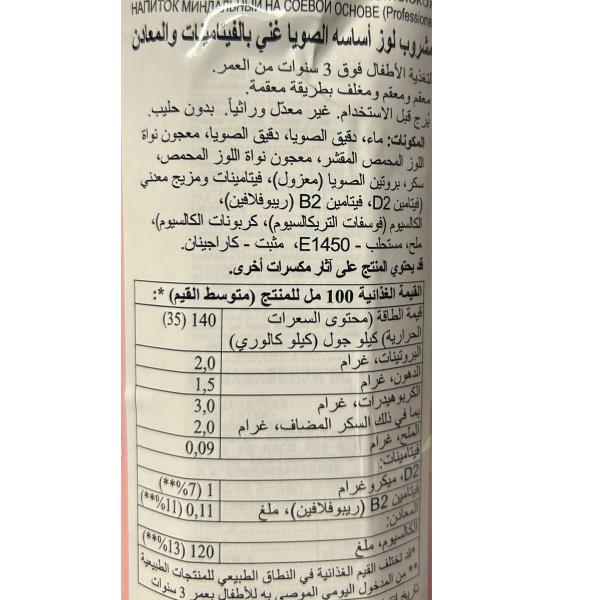 НАПИТОК МИНДАЛЬНЫЙ НА СОЕВОЙ ОСНОВЕ (Professiona
مشروب لوز أساسه الصويا غني بالفيتامينات والمعادن
لتغذية الأطفال فوق 3 سنوات من العمر.
معقم ومعقم ومغلف بطريقة معقمة.
يُرج قبل الاستخدام. غير معدّل وراثياً. بدون حليب.
المكونات: ماء، دقيق الصويا، دقيق الصويا، معجون نواة
اللوز المحمص المقشر، معجون نواة اللوز المحمص،
سكر، بروتين الصويا (معزول)، فيتامينات ومزيج معدني
(فيتامين D2، فيتامين B2 (ريبوفلافين)،
الكالسيوم (فوسفات التريكالسيوم)، كربونات الكالسيوم)،
ملح، مستحلب - E1450، مثبت - كاراجينان.
قد يحتوي المنتج على آثار مكسرات أخرى.
القيمة الغذائية 100 مل للمنتج (متوسط القيم) *:
قيمة الطاقة (محتوى السعرات 140 (35)
الحرارية) كيلو جول (كيلو كالوري)
البروتينات، غرام 2,0
الدهون، غرام 1,5
الكربوهيدرات، غرام 3,0
بما في ذلك السكر المضاف، غرام 2,0
الملح، غرام 0,09
فيتامينات:
D2، ميكروغرام 1 (7%**)
فيتامين B2 (ريبوفلافين)، ملغ 0,11 (11%**)
المعادن:
الكالسيوم، ملغ 120 (13%**)
*قد تختلف القيم الغذائية في النطاق الطبيعي للمنتجات الطبيعية
** من المدخول اليومي الموصي به للأطفال بعمر 3 سنوات